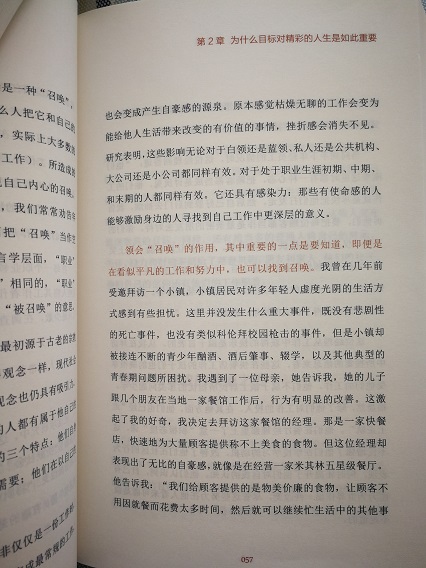 是一种“召唤”，
么人把它和自己的
，实际上大多数的
工作）。所造成的
己内心的召唤。
我们常常劝告年
把“召唤”当作些
言学层面，“职业”
”相同的，“职业”
“被召唤”的意思。
最初源于古老的宗教
观念一样，现代社会
观念也仍具有吸引力。
的人都有属于他自己
的三个特点：他们自
需要；他们在以自己
非仅仅是一份工作
成最常规的工作
第2章 为什么目标对精彩的人生是如此重要
也会变成产生自豪感的源泉。原本感觉枯燥无聊的工作会变为
能给他人生活带来改变的有价值的事情，挫折感会消失不见。
研究表明，这些影响无论对于白领还是蓝领、私人还是公共机构、
大公司还是小公司都同样有效。对于处于职业生涯初期、中期、
和末期的人都同样有效。它还具有感染力：那些有使命感的人
能够激励身边的人寻找到自己工作中更深层的意义。
领会“召唤”的作用，其中重要的一点是要知道，即便是
在看似平凡的工作和努力中，也可以找到召唤。我曾在几年前
受邀拜访一个小镇，小镇居民对许多年轻人虚度光阴的生活方
式感到有些担忧。这里并没发生什么重大事件，既没有悲剧性
的死亡事件，也没有类似科伦拜校园枪击的事件，但是小镇却
被接连不断的青少年酗酒、酒后肇事、辍学，以及其他典型的
青春期问题所困扰。我遇到了一位母亲，她告诉我，她的儿子
跟几个朋友在当地一家餐馆工作后，行为有明显的改善。这激
起了我的好奇，我决定去拜访这家餐馆的经理。那是一家快餐
店，快速地为大量顾客提供称不上美食的食物。但这位经理却
表现出了无比的自豪感，就像是在经营一家米其林五星级餐厅。
他告诉我：“我们给顾客提供的是物美价廉的食物，让顾客不
用因就餐而花费太多时间，然后就可以继续忙生活中的其他事
057